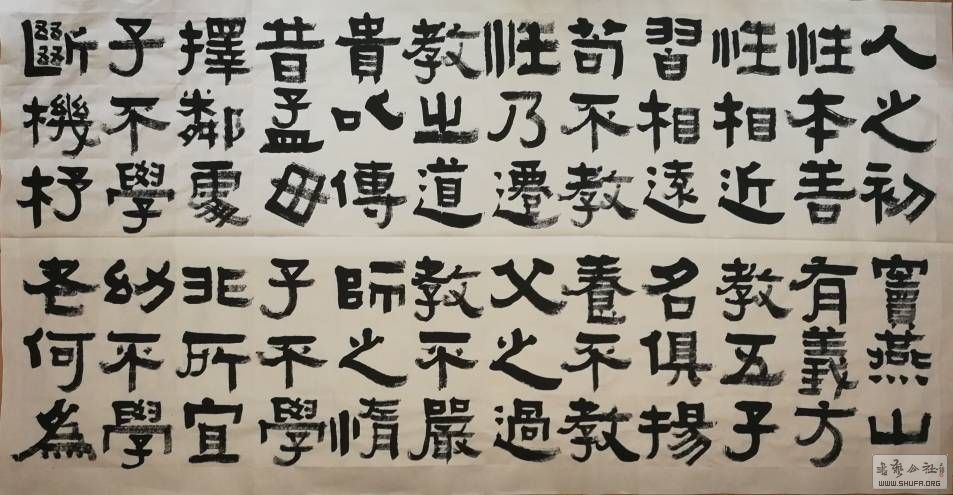 人之初
性本善
性相近
習相遠
苟不教
性乃遷
教之道
貴以傳
昔孟母
擇鄰處
子不學
斷機杼
竇燕山
有義方
教五子
名俱揚
養不教
父之過
教不嚴
師之惰
子不學
非所宜
幼不學
老何為
WWW.SHUFA.ORG